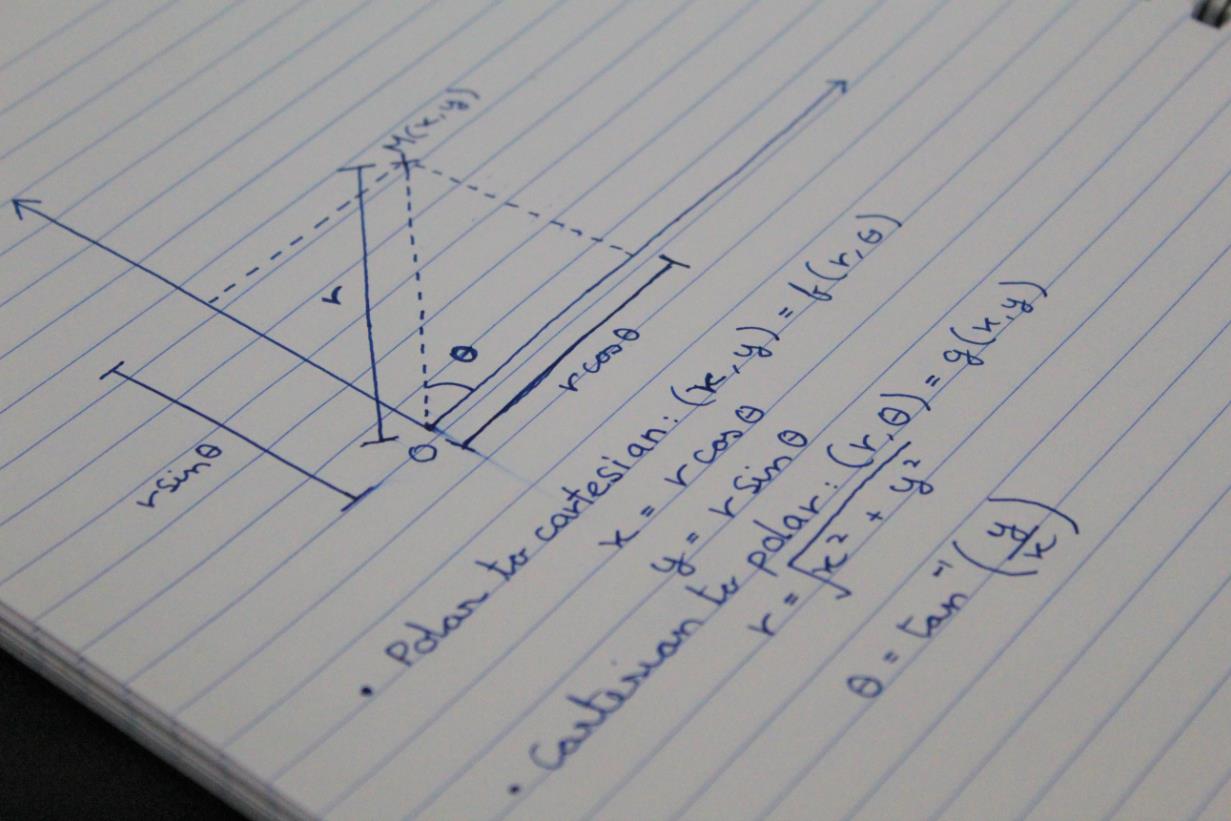 M(x,y)
r
θ
r sinθ
O
r cosθ
• Polar to cartesian: (x,y) = f(r,θ)
x = r cosθ
y = r sinθ
• Cartesian to polar: (r,θ) = g(x,y)
r = √(x² + y²)
θ = tan⁻¹(y/x)